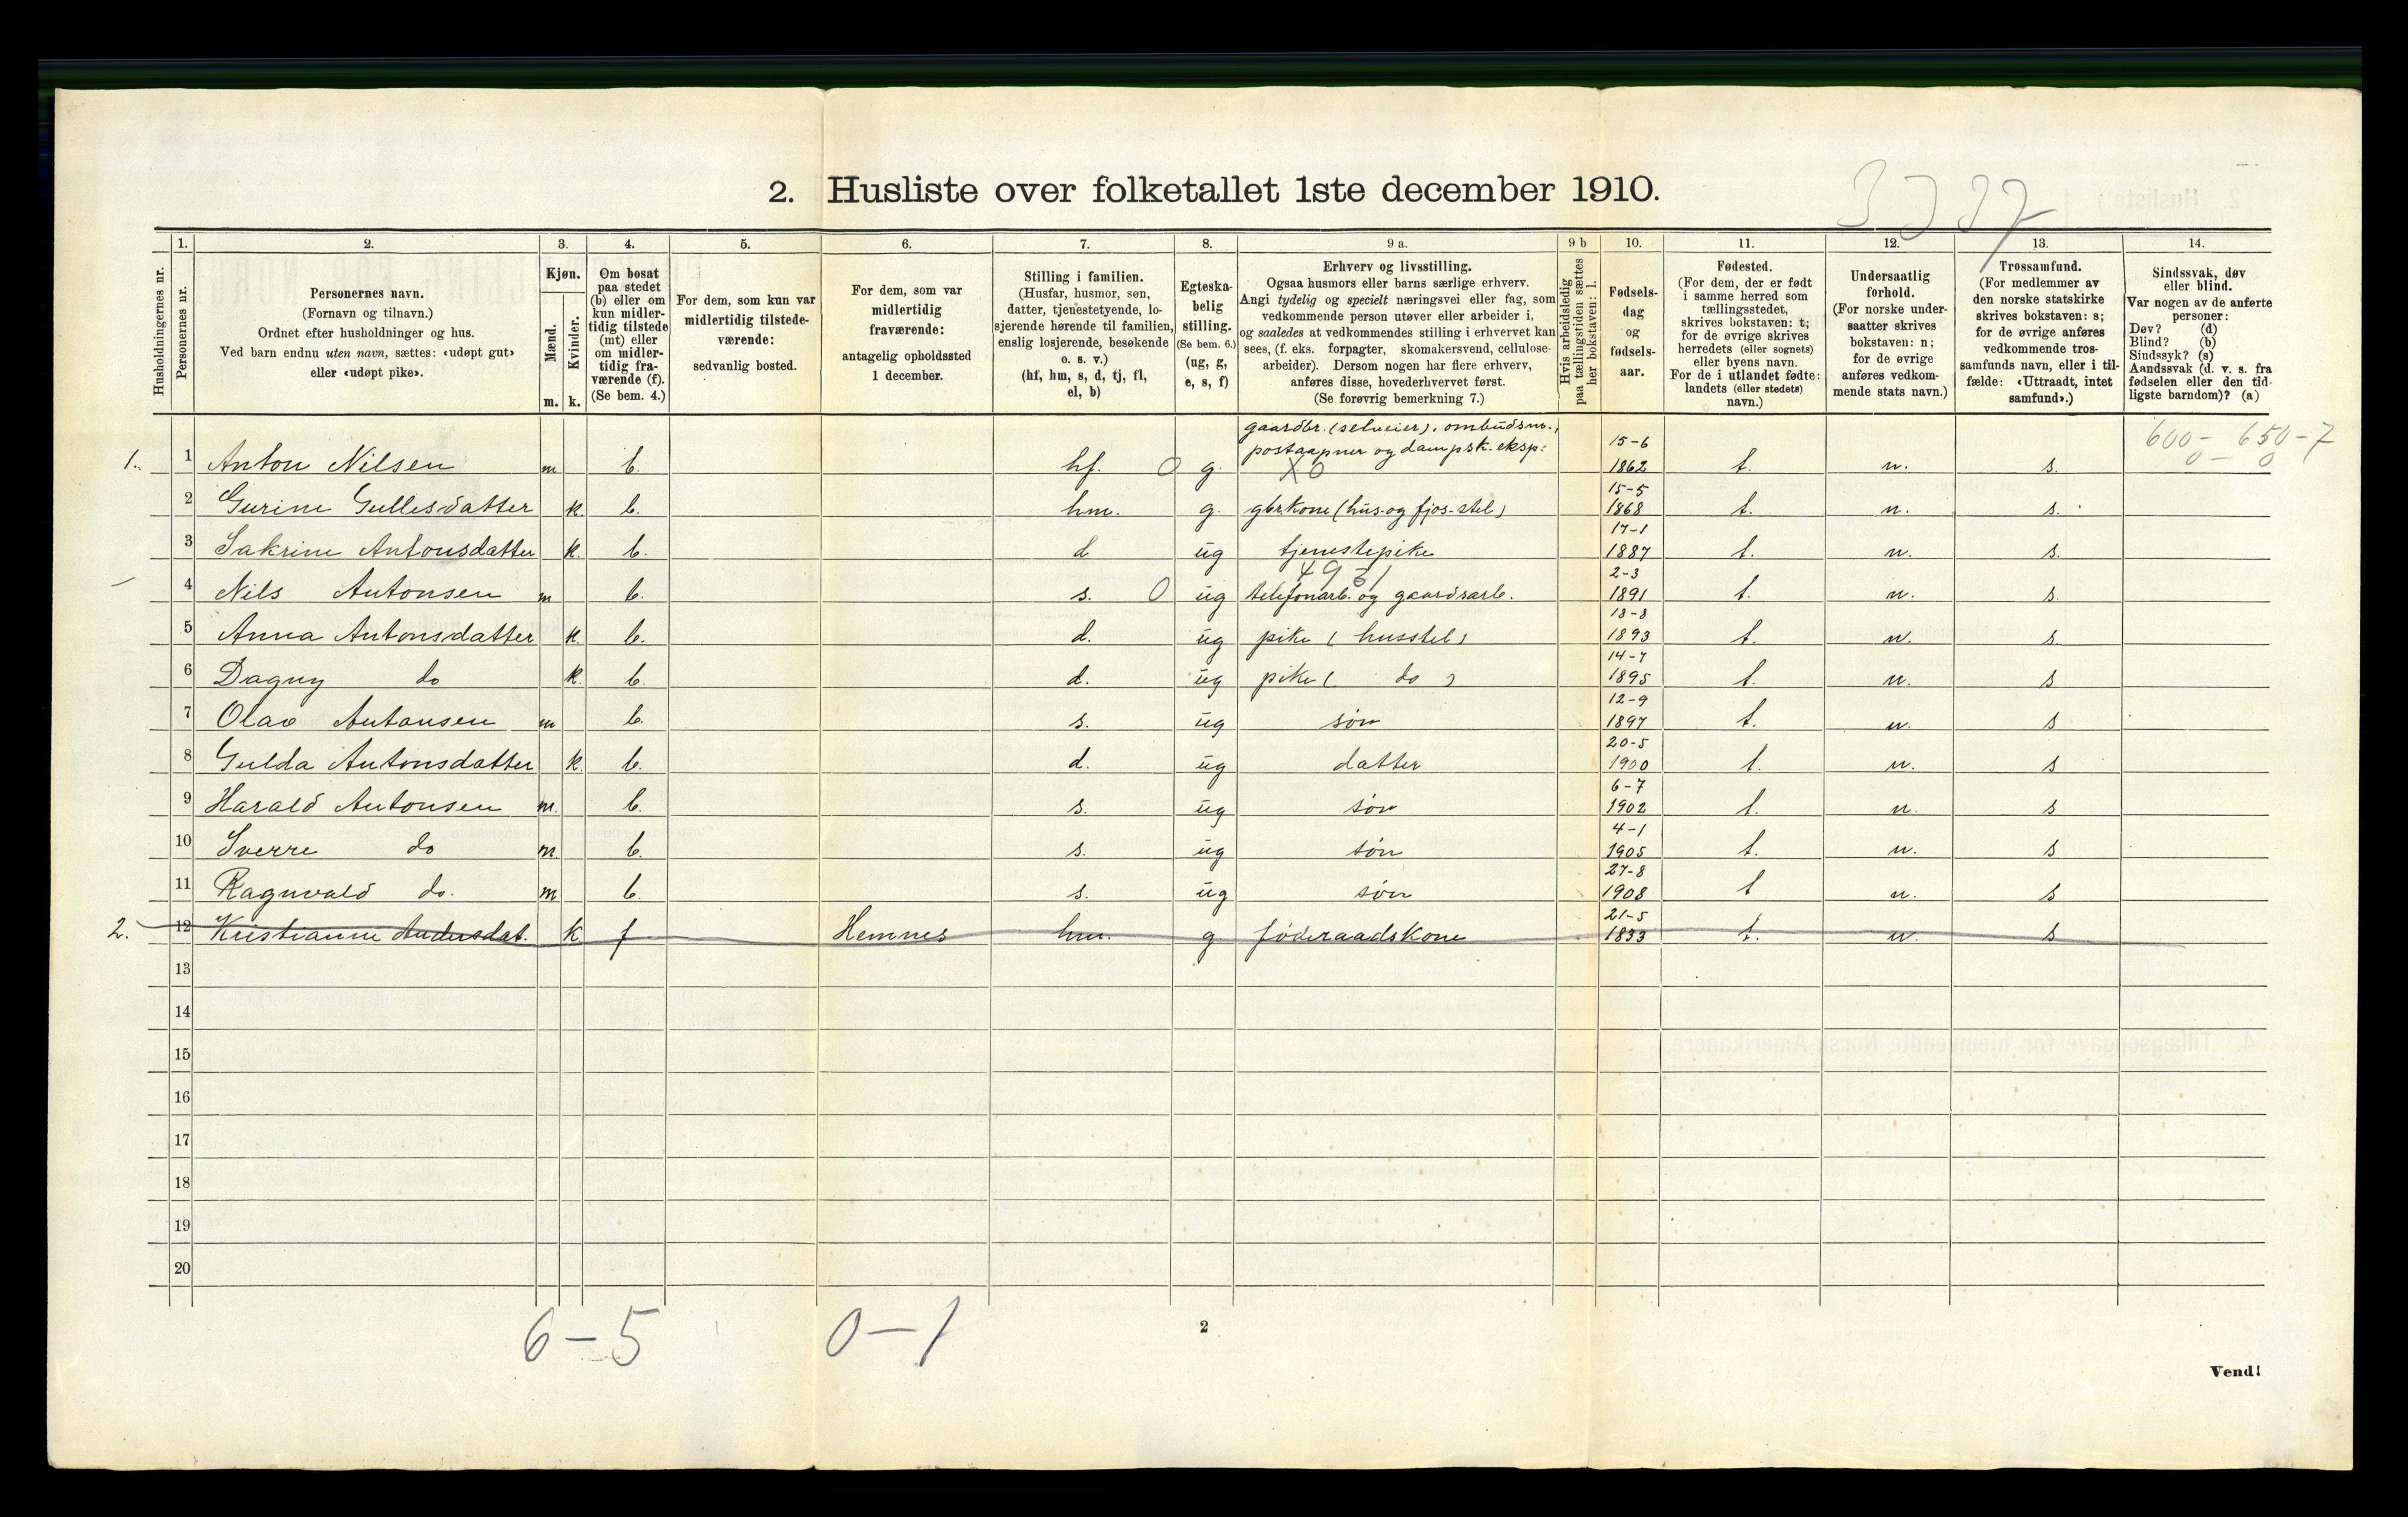 2. Husliste over folketallet 1ste december 1910.
1. 2. 3. 4. 5. 6. 7. 8. 9 a. 9 b 10. 11. 12. 13. 14.
Husholdningernes nr.
Personernes nr.
Personernes navn.
(Fornavn og tilnavn.)
Ordnet efter husholdninger og hus.
Ved barn endnu uten navn, sættes: «udøpt gut»
eller «udøpt pike».
Kjøn.
Mænd.
Kvinder.
m. k.
Om bosat
paa stedet
(b) eller om
kun midler-
tidig tilstede
(mt) eller
om midler-
tidig fra-
værende (f).
(Se bem. 4.)
For dem, som kun var
midlertidig tilstede-
værende:
sedvanlig bosted.
For dem, som var
midlertidig
fraværende:
antagelig opholdssted
1 december.
Stilling i familien.
(Husfar, husmor, søn,
datter, tjenestetyende, lo-
sjerende hørende til familien,
enslig losjerende, besøkende
o. s. v.)
(hf, hm, s, d, tj, fl,
el, b)
Egteska-
belig
stilling.
(Se bem. 6.)
(ug, g,
e, s, f)
Erhverv og livsstilling.
Ogsaa husmors eller barns særlige erhverv.
Angi tydelig og specielt næringsvei eller fag, som
vedkommende person utøver eller arbeider i,
og saaledes at vedkommendes stilling i erhvervet kan
sees, (f. eks. forpagter, skomakersvend, cellulose-
arbeider). Dersom nogen har flere erhverv,
anføres disse, hovederhvervet først.
(Se forøvrig bemerkning 7.)
Hvis arbeidsledig
paa tællingstiden sættes
her bokstaven: l.
Fødsels-
dag
og
fødsels-
aar.
Fødested.
(For dem, der er født
i samme herred som
tællingsstedet,
skrives bokstaven: t;
for de øvrige skrives
herredets (eller sognets)
eller byens navn.
For de i utlandet fødte:
landets (eller stedets)
navn.)
Undersaatlig
forhold.
(For norske under-
saatter skrives
bokstaven: n;
for de øvrige
anføres vedkom-
mende stats navn.)
Trossamfund.
(For medlemmer av
den norske statskirke
skrives bokstaven: s;
for de øvrige anføres
vedkommende tros-
samfunds navn, eller i til-
fælde: «Uttraadt, intet
samfund».)
Sindssvak, døv
eller blind.
Var nogen av de anførte
personer:
Døv? (d)
Blind? (b)
Sindssyk? (s)
Aandssvak (d. v. s. fra
fødselen eller den tid-
ligste barndom)? (a)
gaardbr. (selveier), ombudsm.,
postaapner og dampsk. eksp:
600- 650-7
0 - 0
1. 1 Anton Nilsen m b. hf. 0 g. X0 15-6 1862 t. n. s.
2 Gurine Gullesdatter k. b. hm. g. gbrkone (hus- og fjos-stel) 15-5 1868 t. n. s.
3 Sakrine Antonsdatter k. b. d ug tjenestepike 17-1 1887 t. n. s.
4 Nils Antonsen m b. s. 0 ug telefonarb. og gaardsarb. 2-3 1891 t. n. s
5 Anna Antonsdatter k. b. d. ug pike (husstel) 13-8 1893 t. n. s.
6 Dagny do k. b. d. ug pike ( do ) 14-7 1895 t. n. s
7 Olav Antonsen m b. s. ug søn 12-9 1897 t. n. s
8 Gulda Antonsdatter k. b. d. ug datter 20-5 1900 t. n. s
9 Harald Antonsen m. b. s. ug søn 6-7 1902 t. n. s
10 Sverre do m. b. s. ug søn 4-1 1905 t. n. s
11 Ragnvald do. m b. s. ug søn 27-8 1908 t n. s
2. 12 Kristianne Andersdat. k f Hemnes hm. g. føderaadskone 21-5 1833 t. n. s
13
14
15
16
17
18
19
20
6-5 0-1
2
Vend!